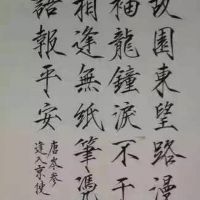 故園東望路漫
袖龍鐘淚不干
相逢無紙筆憑
語報平安
唐岑參
逢入京使